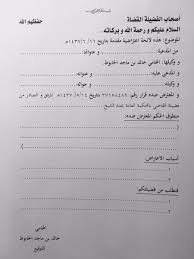 أصحاب الفضيلة القضاة حفظهم الله
السلام عليكم و رحمة الله و بركاته.
الموضوع: هذه لائحة اعتراضية مقدمة بتاريخ ١٤٣٧/٦/١٦هـ
من المدعية: و عنوانها:
و وكيلها: المحامي خالد بن ماجد الخابوط.
ضد المدعى عليه: و عنوانه:
و وكيله: و عنوانه:
و المعترض ضده قرار رقم ٣٧١٥٨٤٨٩ بتاريخ ١٤٣٧/٥/١٤هـ و الصادر من
فضيلة القاضي بالمحكمة العامة بجدة الشيخ
منطوق الحكم المعترض ضده:
أسباب الاعتراض
فنطلب من فضيلتكم:
المحامي
خالد بن ماجد الخابوط